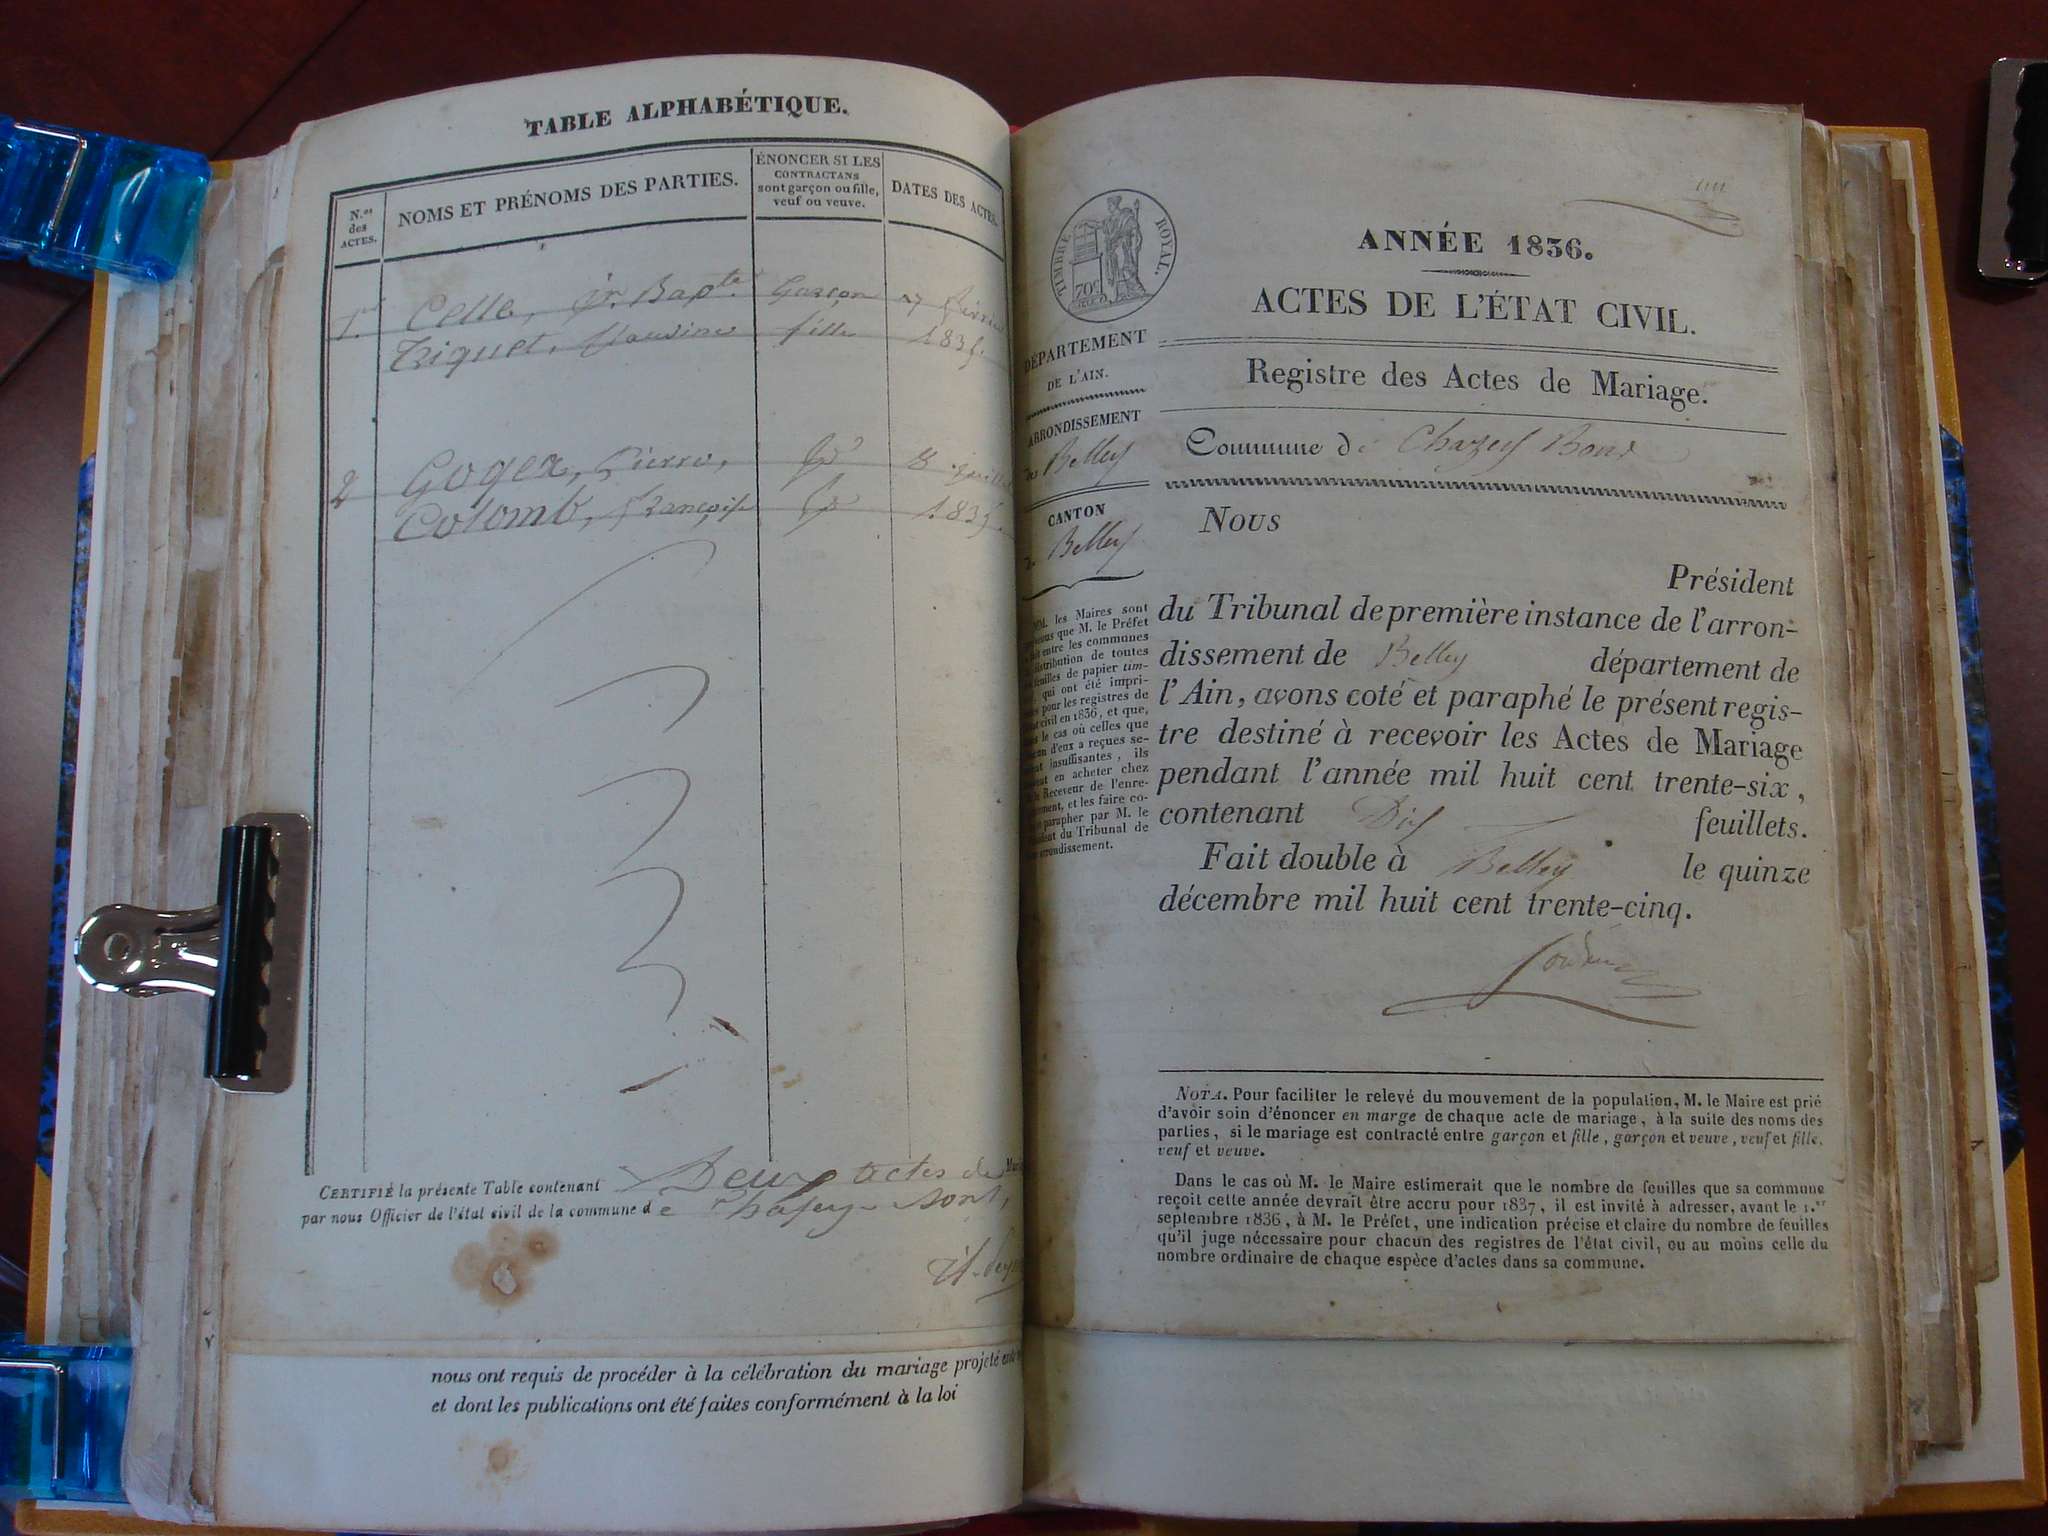 TABLE ALPHABÉTIQUE.
N.os des ACTES.
NOMS ET PRÉNOMS DES PARTIES.
ÉNONCER SI LES CONTRACTANS sont garçon ou fille, veuf ou veuve.
DATES DES ACTES.
1.er Celle, jn. Bapte. Garçon 27 février
Triquet, Claudine fille 1835.
2 Gogex, Pierre, Gn 8 juillet
Colomb, françoise 1835.
CERTIFIÉ la présente Table contenant Deux actes de
par nous Officier de l'état civil de la commune de Chasey-Bont,
nous ont requis de procéder à la célébration du mariage projeté
et dont les publications ont été faites conformément à la loi
TIMBRE ROYAL.
70c
ANNÉE 1836.
ACTES DE L'ÉTAT CIVIL.
Registre des Actes de Mariage.
DÉPARTEMENT
DE L'AIN.
ARRONDISSEMENT
de Belley
CANTON
de Belley
Commune de Chazey Bons
MM. les Maires sont
que M. le Préfet
entre les communes
distribution de toutes
feuilles de papier tim-
qui ont été impri-
pour les registres de
civil en 1836, et que,
le cas où celles que
d'eux a reçues se-
insuffisantes, ils
en acheter chez
Receveur de l'enre-
et les faire co-
parapher par M. le
du Tribunal de
arrondissement.
NOUS
Président
du Tribunal de première instance de l'arron-
dissement de Belley département de
l'Ain, avons coté et paraphé le présent regis-
tre destiné à recevoir les Actes de Mariage
pendant l'année mil huit cent trente-six,
contenant Dix feuillets.
Fait double à Belley le quinze
décembre mil huit cent trente-cinq.
NOTA. Pour faciliter le relevé du mouvement de la population, M. le Maire est prié
d'avoir soin d'énoncer en marge de chaque acte de mariage, à la suite des noms des
parties, si le mariage est contracté entre garçon et fille, garçon et veuve, veuf et fille,
veuf et veuve.
Dans le cas où M. le Maire estimerait que le nombre de feuilles que sa commune
reçoit cette année devrait être accru pour 1837, il est invité à adresser, avant le 1.er
septembre 1836, à M. le Préfet, une indication précise et claire du nombre de feuilles
qu'il juge nécessaire pour chacun des registres de l'état civil, ou au moins celle du
nombre ordinaire de chaque espèce d'actes dans sa commune.